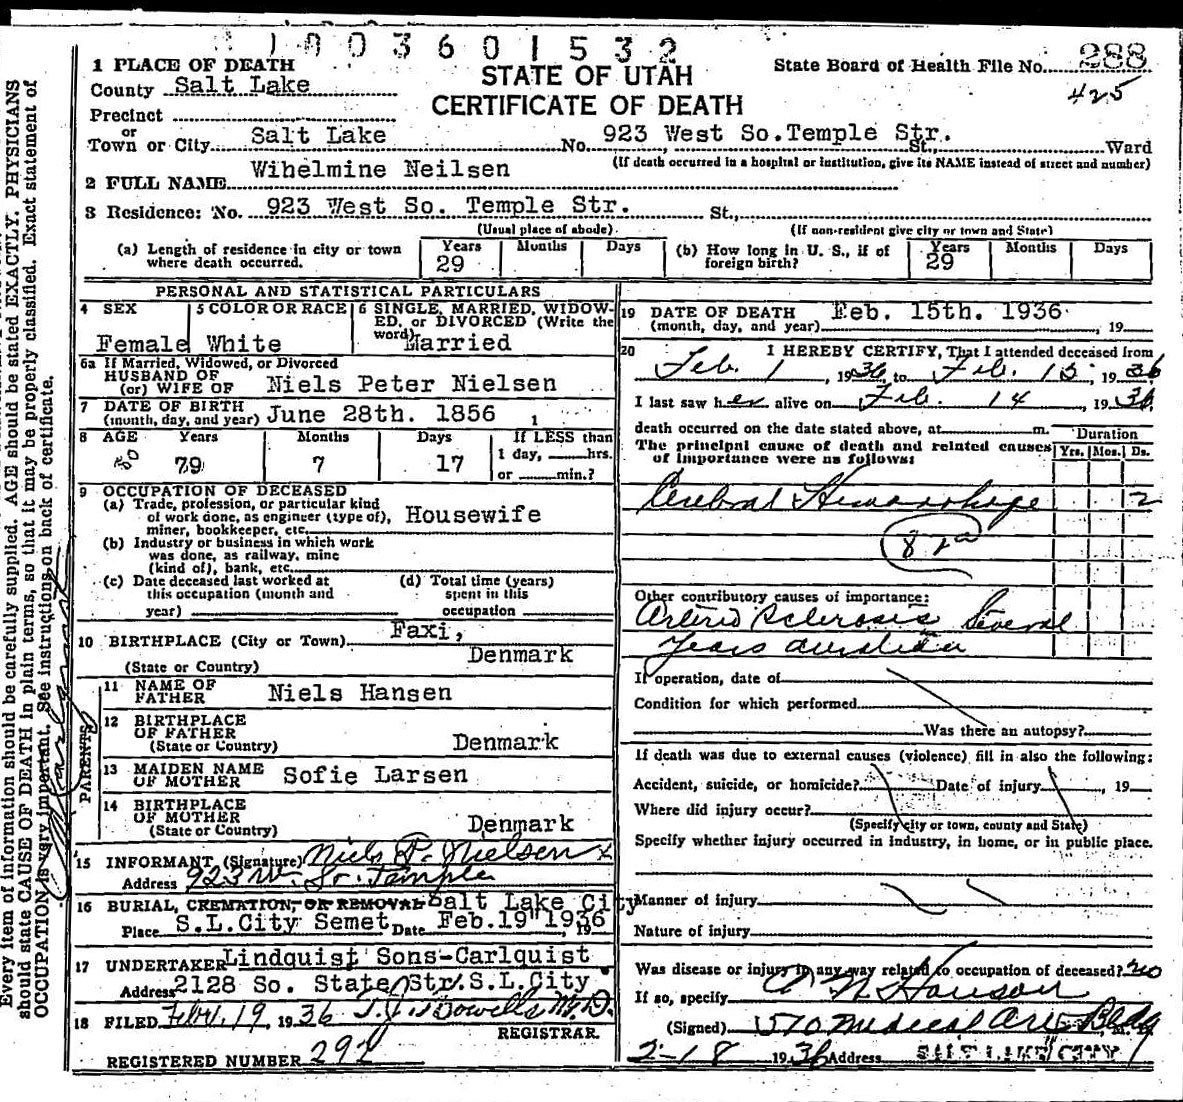 1003601532
288
1 PLACE OF DEATH
STATE OF UTAH
State Board of Health File No.
425
County Salt Lake
CERTIFICATE OF DEATH
Precinct
or
Town or City Salt Lake No. 923 West So. Temple Str. St., Ward
(If death occurred in a hospital or institution, give its NAME instead of street and number)
2 FULL NAME Wihelmine Neilsen
3 Residence: No. 923 West So. Temple Str. St.,
(Usual place of abode) (If non-resident give city or town and State)
(a) Length of residence in city or town where death occurred. Years 29 Months Days
(b) How long in U. S., if of foreign birth? Years 29 Months Days
PERSONAL AND STATISTICAL PARTICULARS
4 SEX Female
5 COLOR OR RACE White
6 SINGLE, MARRIED, WIDOWED, or DIVORCED (Write the word) Married
6a If Married, Widowed, or Divorced
HUSBAND OF
(or) WIFE OF Niels Peter Nielsen
7 DATE OF BIRTH
(month, day, and year) June 28th. 1856 1
8 AGE Years Months Days If LESS than
80 79 7 17 1 day, hrs.
or min.?
9 OCCUPATION OF DECEASED
(a) Trade, profession, or particular kind
of work done, as engineer (type of),
miner, bookkeeper, etc. Housewife
(b) Industry or business in which work
was done, as railway, mine
(kind of), bank, etc.
(c) Date deceased last worked at
this occupation (month and
year)
(d) Total time (years)
spent in this
occupation
10 BIRTHPLACE (City or Town) Faxi,
(State or Country) Denmark
PARENTS
11 NAME OF
FATHER Niels Hansen
12 BIRTHPLACE
OF FATHER
(State or Country) Denmark
13 MAIDEN NAME
OF MOTHER Sofie Larsen
14 BIRTHPLACE
OF MOTHER
(State or Country) Denmark
15 INFORMANT (Signature) Niels P. Nielsen x
Address 923 W. So. Temple
16 BURIAL, CREMATION, OR REMOVAL Salt Lake City
Place S.L.City Semet Date Feb.19" 1936 19
17 UNDERTAKER Lindquist Sons-Carlquist
Address 2128 So. State Str. S.L.City.
18 FILED Feb. 19, 1936 M.D.
REGISTRAR.
REGISTERED NUMBER 292
19 DATE OF DEATH
(month, day, and year) Feb. 15th. 1936 , 19
20 I HEREBY CERTIFY, That I attended deceased from
Feb. 1, 1936 to Feb. 15, 1936
I last saw her alive on Feb. 14, 1936
death occurred on the date stated above, at m.
The principal cause of death and related causes
of importance were as follows:
Duration
Yrs. Mos. Ds.
Cerebral Hemorrhage 2
82a
Other contributory causes of importance:
Arterio Sclerosis Several
Years duration
If operation, date of
Condition for which performed
Was there an autopsy?
If death was due to external causes (violence) fill in also the following:
Accident, suicide, or homicide? Date of injury , 19
Where did injury occur?
(Specify city or town, county and State)
Specify whether injury occurred in industry, in home, or in public place.
Manner of injury
Nature of injury
Was disease or injury in any way related to occupation of deceased? no
If so, specify
(Signed) Hanson
570 Medical Arts Bldg
2-18 1936 Address SALT LAKE CITY
Every item of information should be carefully supplied. AGE should be stated EXACTLY. PHYSICIANS
should state CAUSE OF DEATH in plain terms, so that it may be properly classified. Exact statement of
OCCUPATION is very important. See instructions on back of certificate.